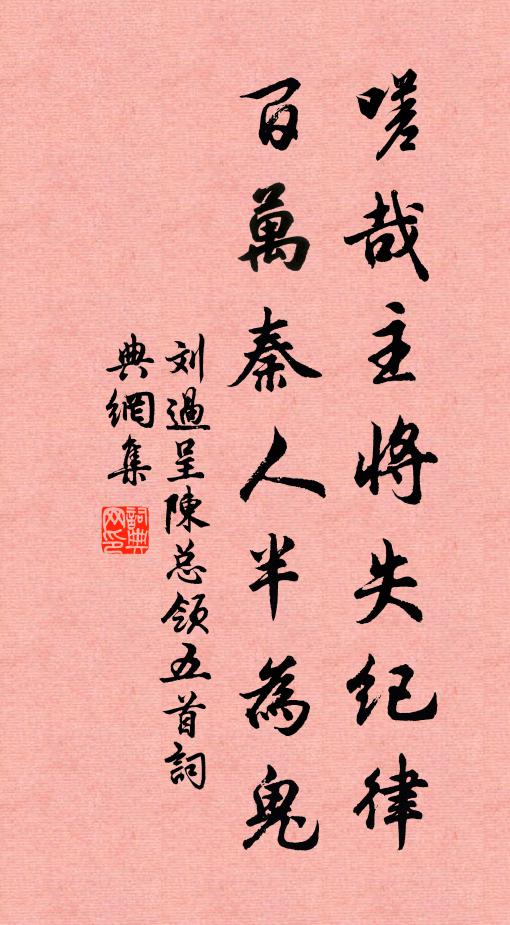 嗟哉主将失纪律
百萬秦人半為鬼
刘過呈陳总领五首詞
典網集
詞典网印